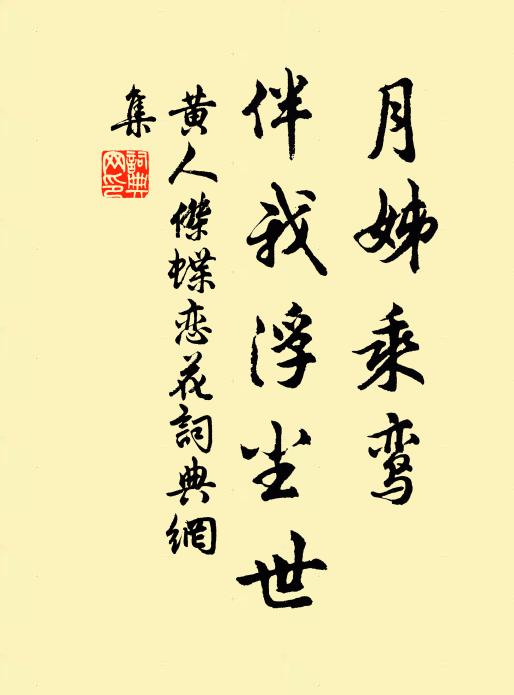 月姊乘鸾
伴我浮尘世
黄人傑蝶恋花詞典網
集
詞典网印